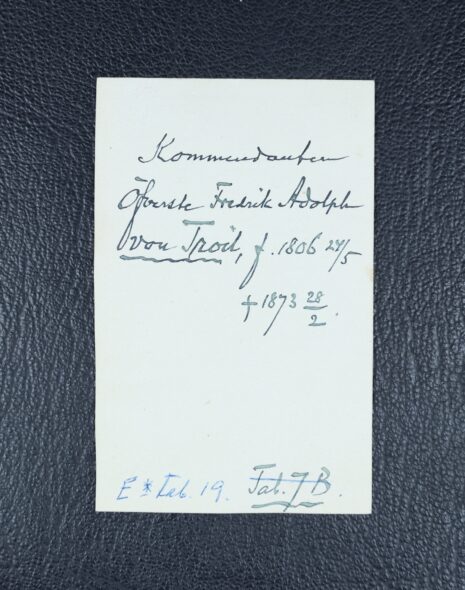 Kommendanten
Öfverste Fredrik Adolph
von Troil, f. 1806 24/5
† 1873 28/2.
E * Tab. 19. Tab. 7 B.